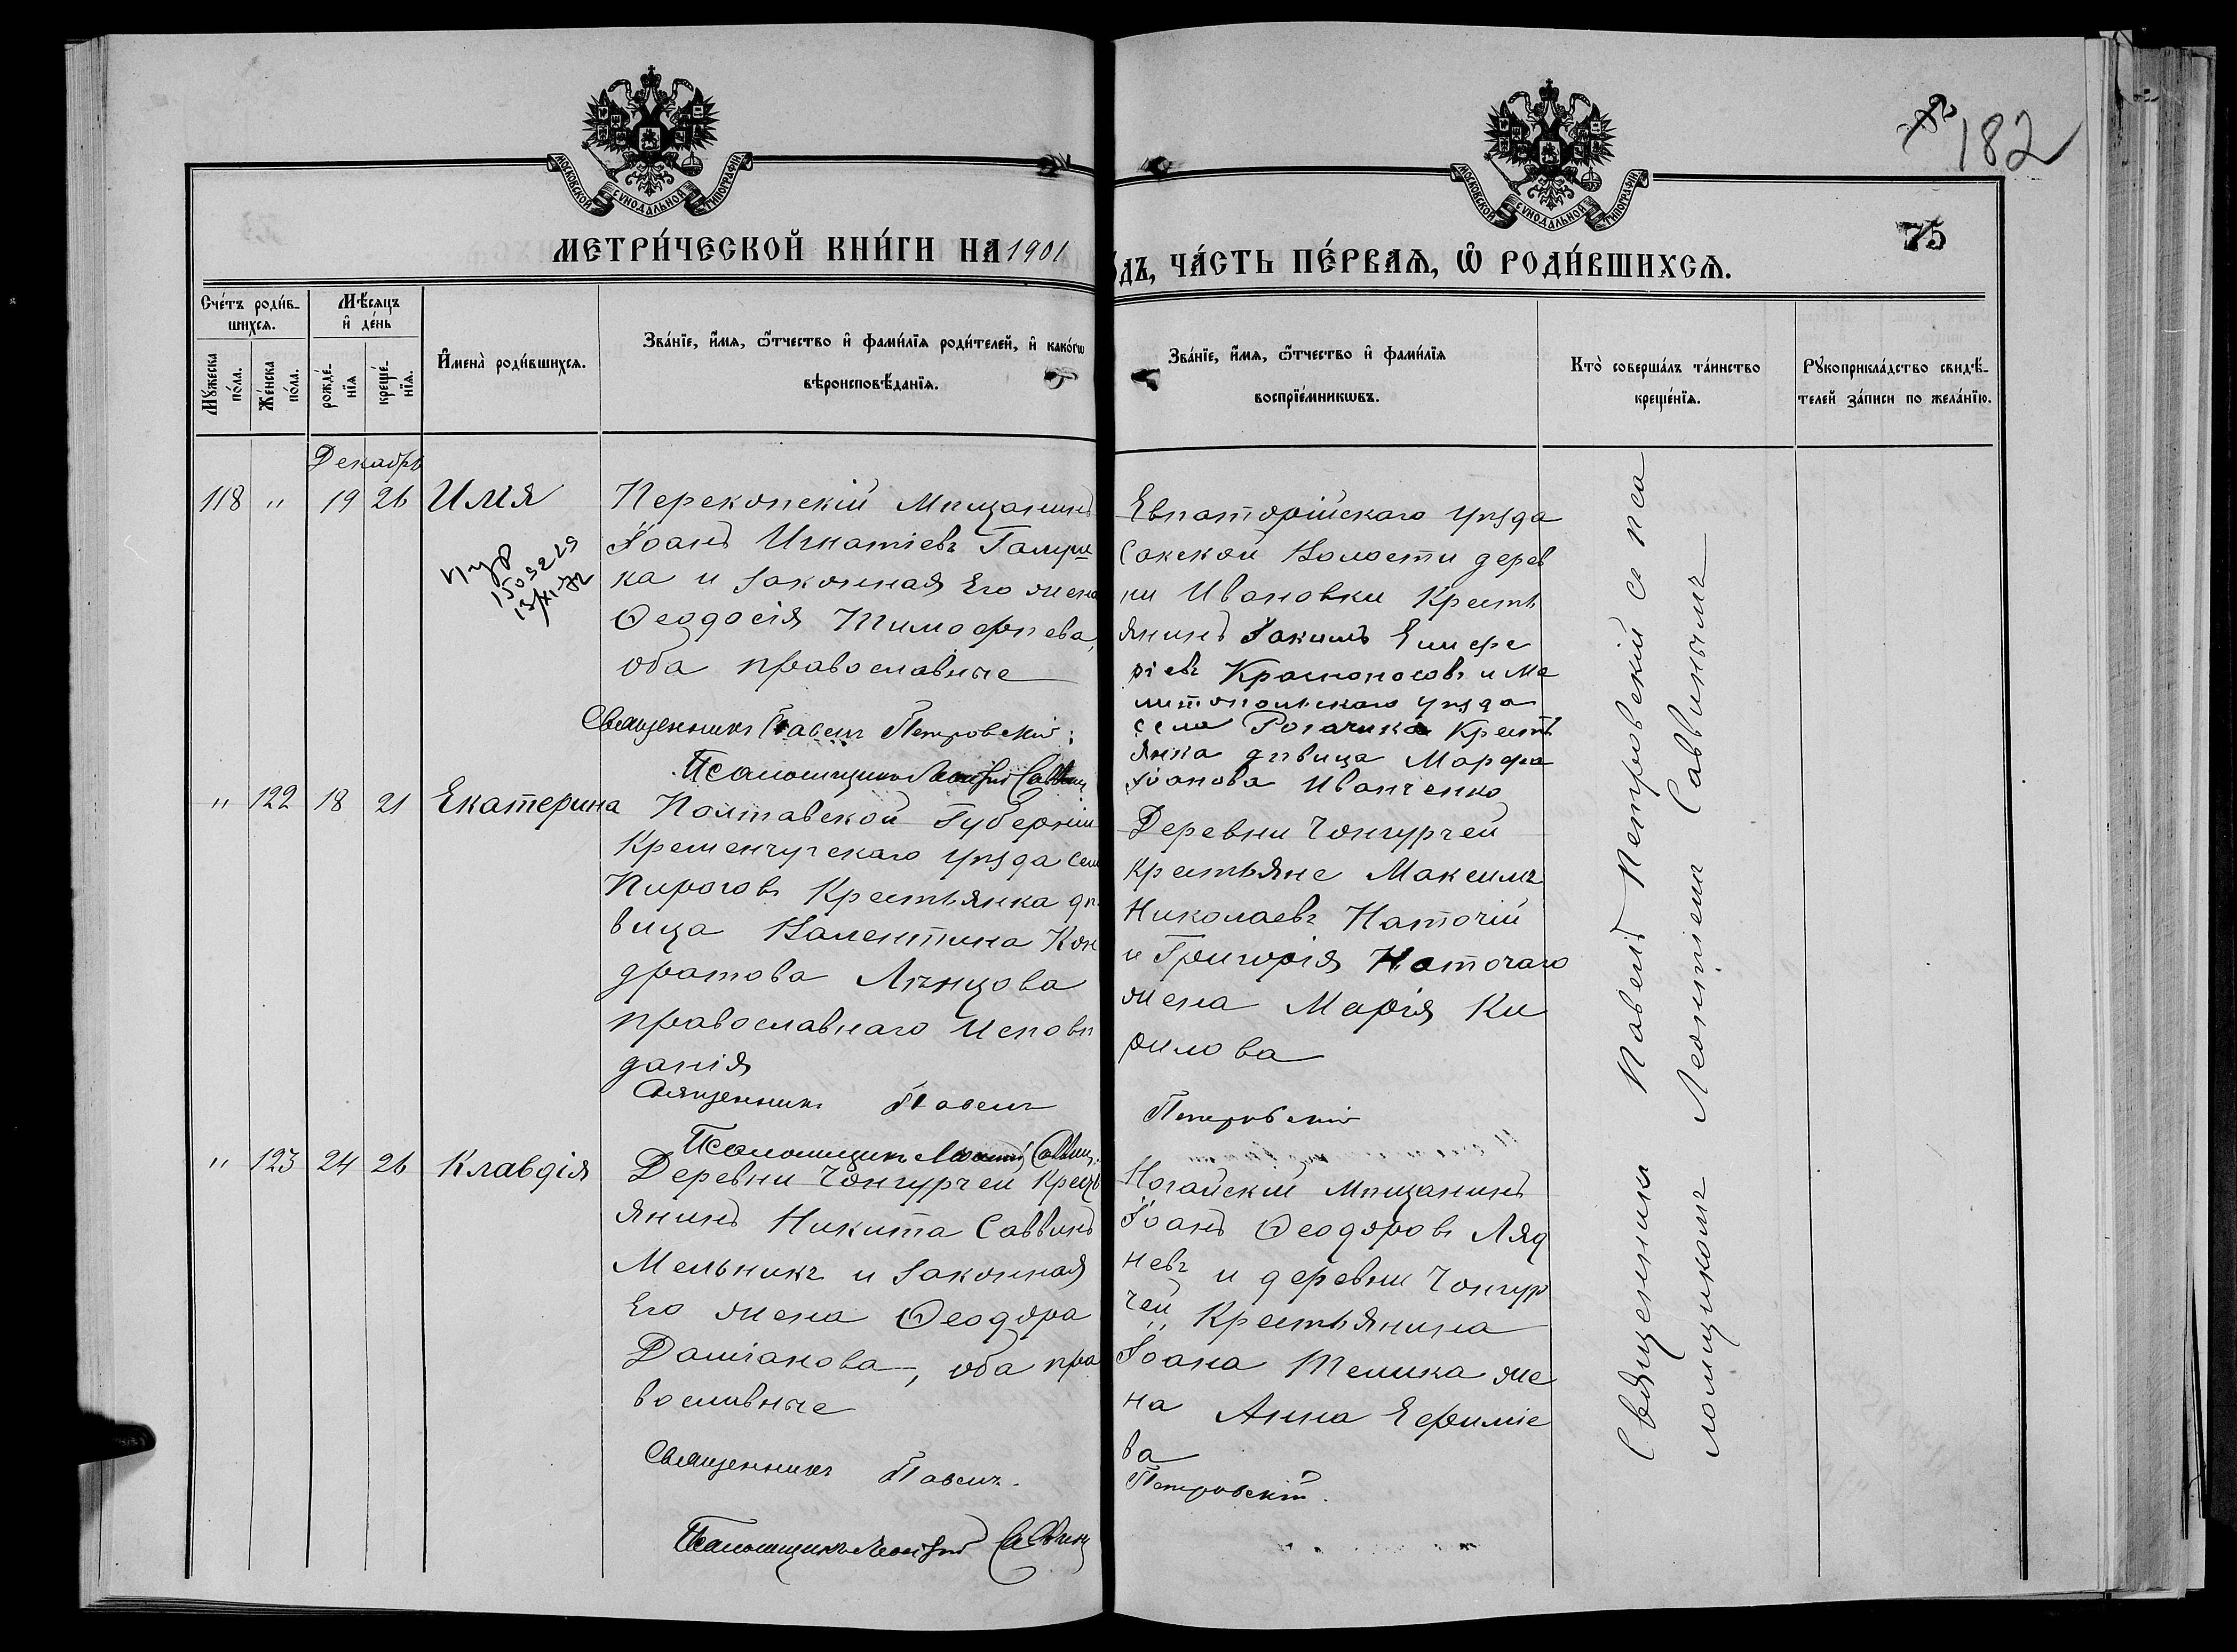 182
75
МОСКОВСКОЙ СѴНОДАЛЬНОЙ ТИПОГРАФІИ
МОСКОВСКОЙ СѴНОДАЛЬНОЙ ТИПОГРАФІИ
МЕТРИ́ЧЕСКОЙ КНИ́ГИ НА 1901
ДЪ, ЧА́СТЬ ПЕ́РВАѦ, Ѽ РОДИ́ВШИХСѦ.
Сче́тъ роди́в-
шихсѧ.
Мꙋ́жеска
по́ла.
Же́нска
по́ла.
Мѣ́сѧцъ
и҆ де́нь
рожде́-
нїѧ
креще́-
нїѧ.
И҆мена̀ роди́вшихсѧ.
Зва́нїе, и҆́мѧ, ѻ҆́тчество и҆ фами́лїѧ роди́телей, и҆ како́гѡ
вѣроисповѣ́данїѧ.
Зва́нїе, и҆́мѧ, ѻ҆́тчество и҆ фами́лїѧ
воспрїе́мникѡвъ.
Кто̀ соверша́лъ та́инство
креще́нїѧ.
Рꙋкоприкла́дство свидѣ́-
телей за́писи по жела́нїю.
Декабрь
118 " 19 26 Илія
150529
13/XI-72
Перекопскій Мѣщанинъ
Іоанъ Игнатіевъ Галуш
ка и законная Его жена
Ѳеодосія Тимофѣева,
оба православные
Священникъ Павелъ Петровскій;
Псаломщикъ Леонтій Саввин
Евпаторійскаго уѣзда
Сакской Волости дерев
ни Ивановки Кресть
янинъ Іакимъ Елифе
ріевъ Красноносовъ и Ме
литопольскаго уѣзда
села Рогачика Кресть
янка дѣвица Марфа
Іоанова Иванченко
" 122 18 21 Екатерина
Полтавской Губерніи
Кременчугскаго уѣзда сел
Пироговъ Крестьянка дѣ
вица Валентина Кон
дратова Лѣнцова
православнаго Исповѣ
данія
Священникъ Павелъ
Петровскій
Псаломщикъ Леонтій Саввин
Деревни Чонгурчеи
крестьяне Максимъ
Николаевъ Наточій
и Григорія Наточаго
жена Марія Ки
рилова
" 123 24 26 Клавдія
Деревни Чонгурчеи Кресть
янинъ Никита Саввинъ
Мельникъ и законная
Его жена Ѳеодора
Даміанова, оба пра
вославные
Священникъ Павелъ.
Петровскій.
Псаломщикъ Леонтій Саввинъ
Ногайскій Мѣщанинъ
Іоанъ Ѳеодоровъ Ляд
невъ и деревни Чонгур
чеи, Крестьянина
Іоана Телика же
на Анна Ефиміе
ва
Священникъ Павелъ Петровскій съ пса
ломщикомъ Леонтіемъ Саввинымъ